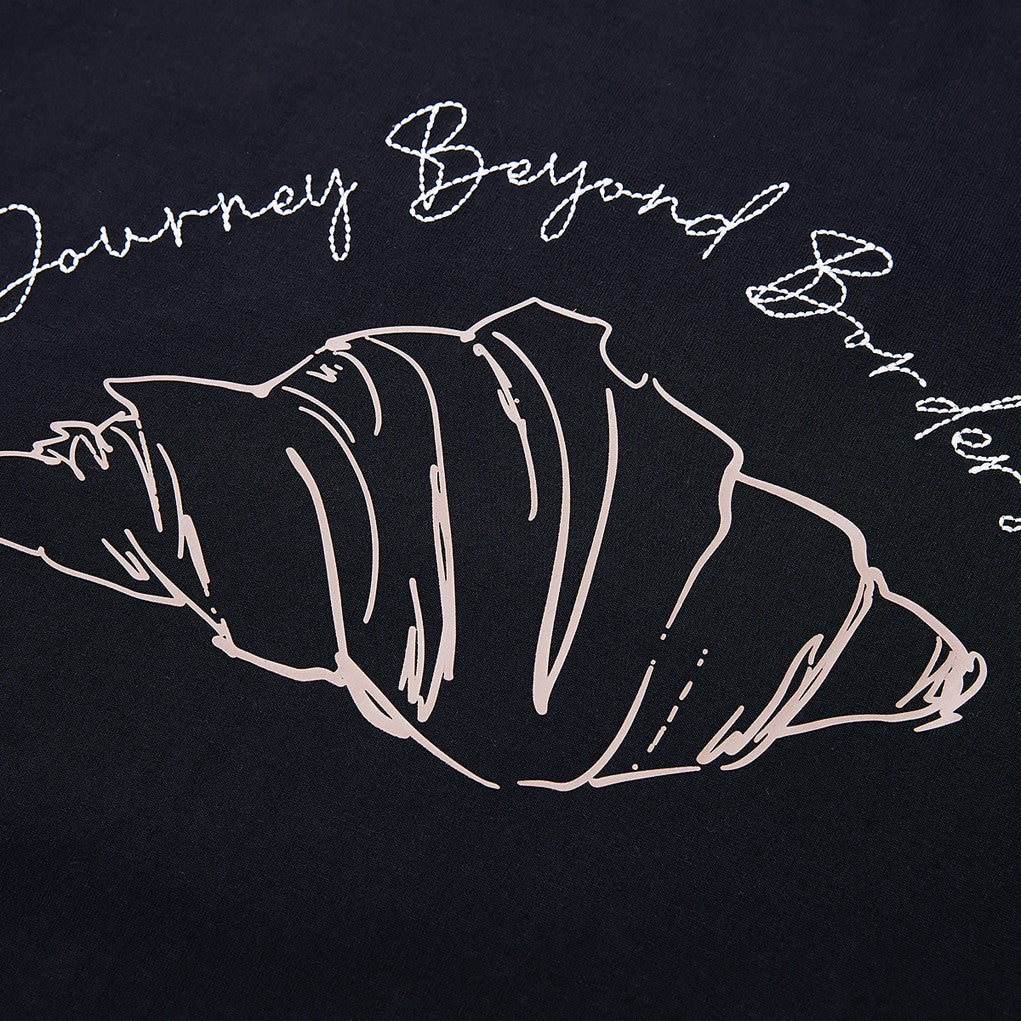 Journey Beyond Borders